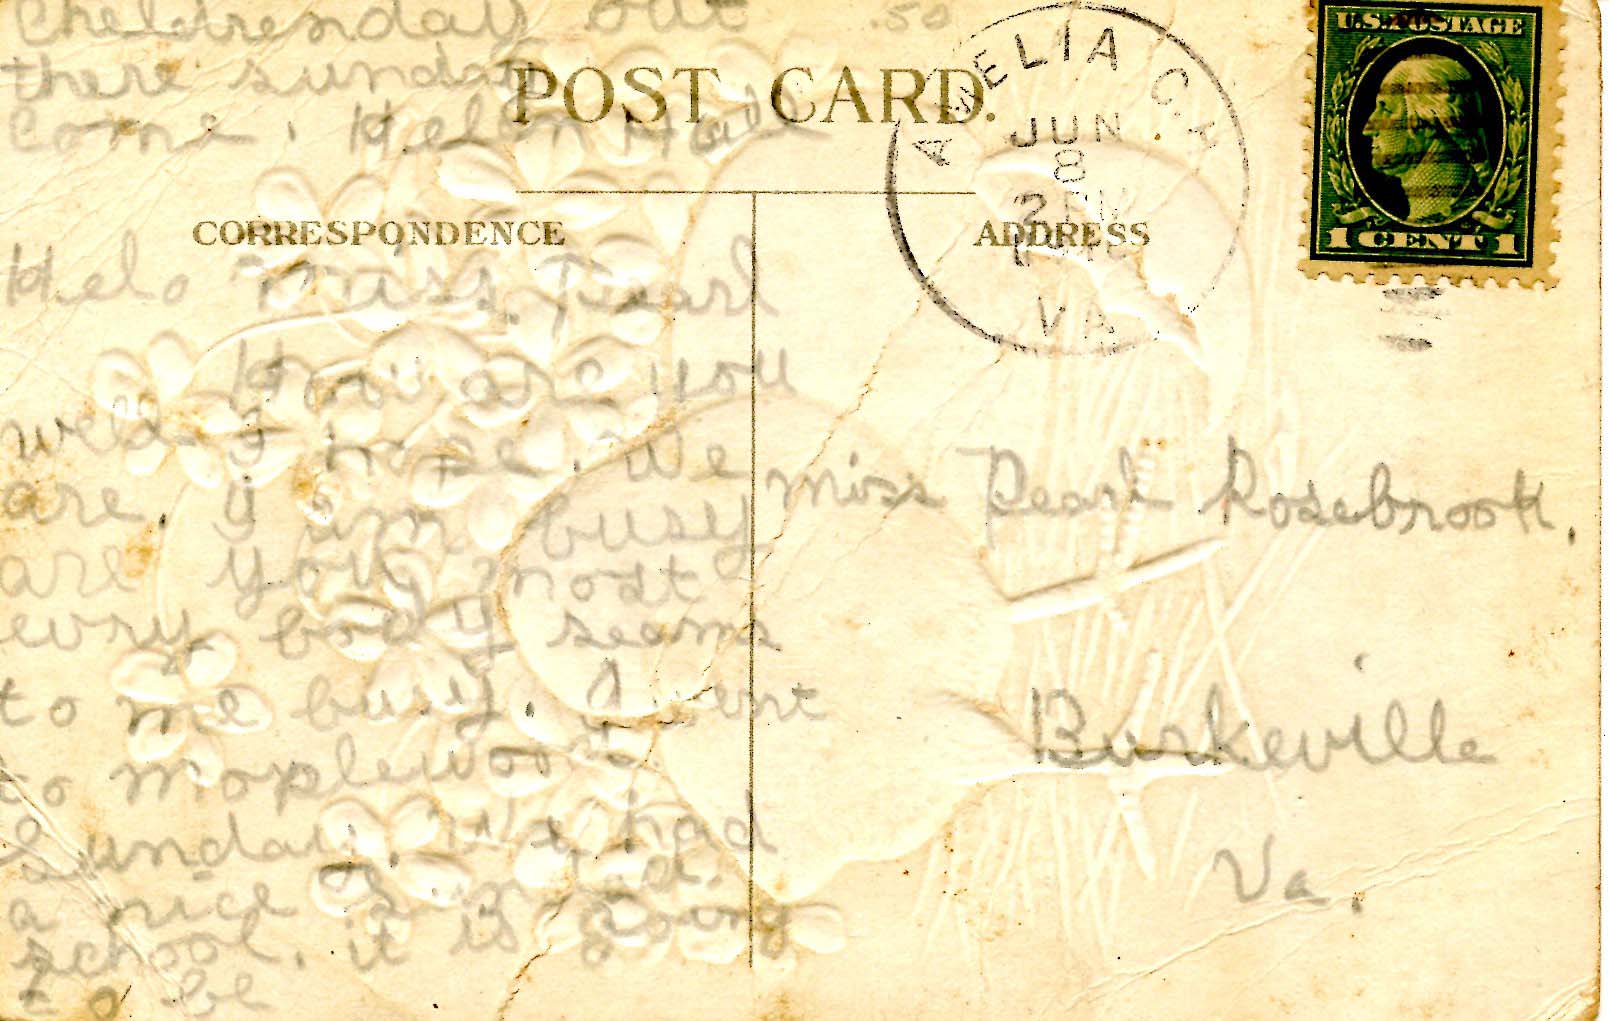 Cheldrenday out
there sunday
Come. Helen Hall
POST CARD.
AMELIA C.H.
JUN
8
2 PM
VA
U.S. POSTAGE
1 CENT 1
CORRESPONDENCE
ADDRESS
Helo Miss. Pearl
How are you
well I hope. We
are. I am busy
are you most
evry body seems
to me busy. I went
to Maplewood
Sunday. We had
a nice Sunday
school. it is going
to be
Miss Pearl Rosebrook.
Burkeville
Va.